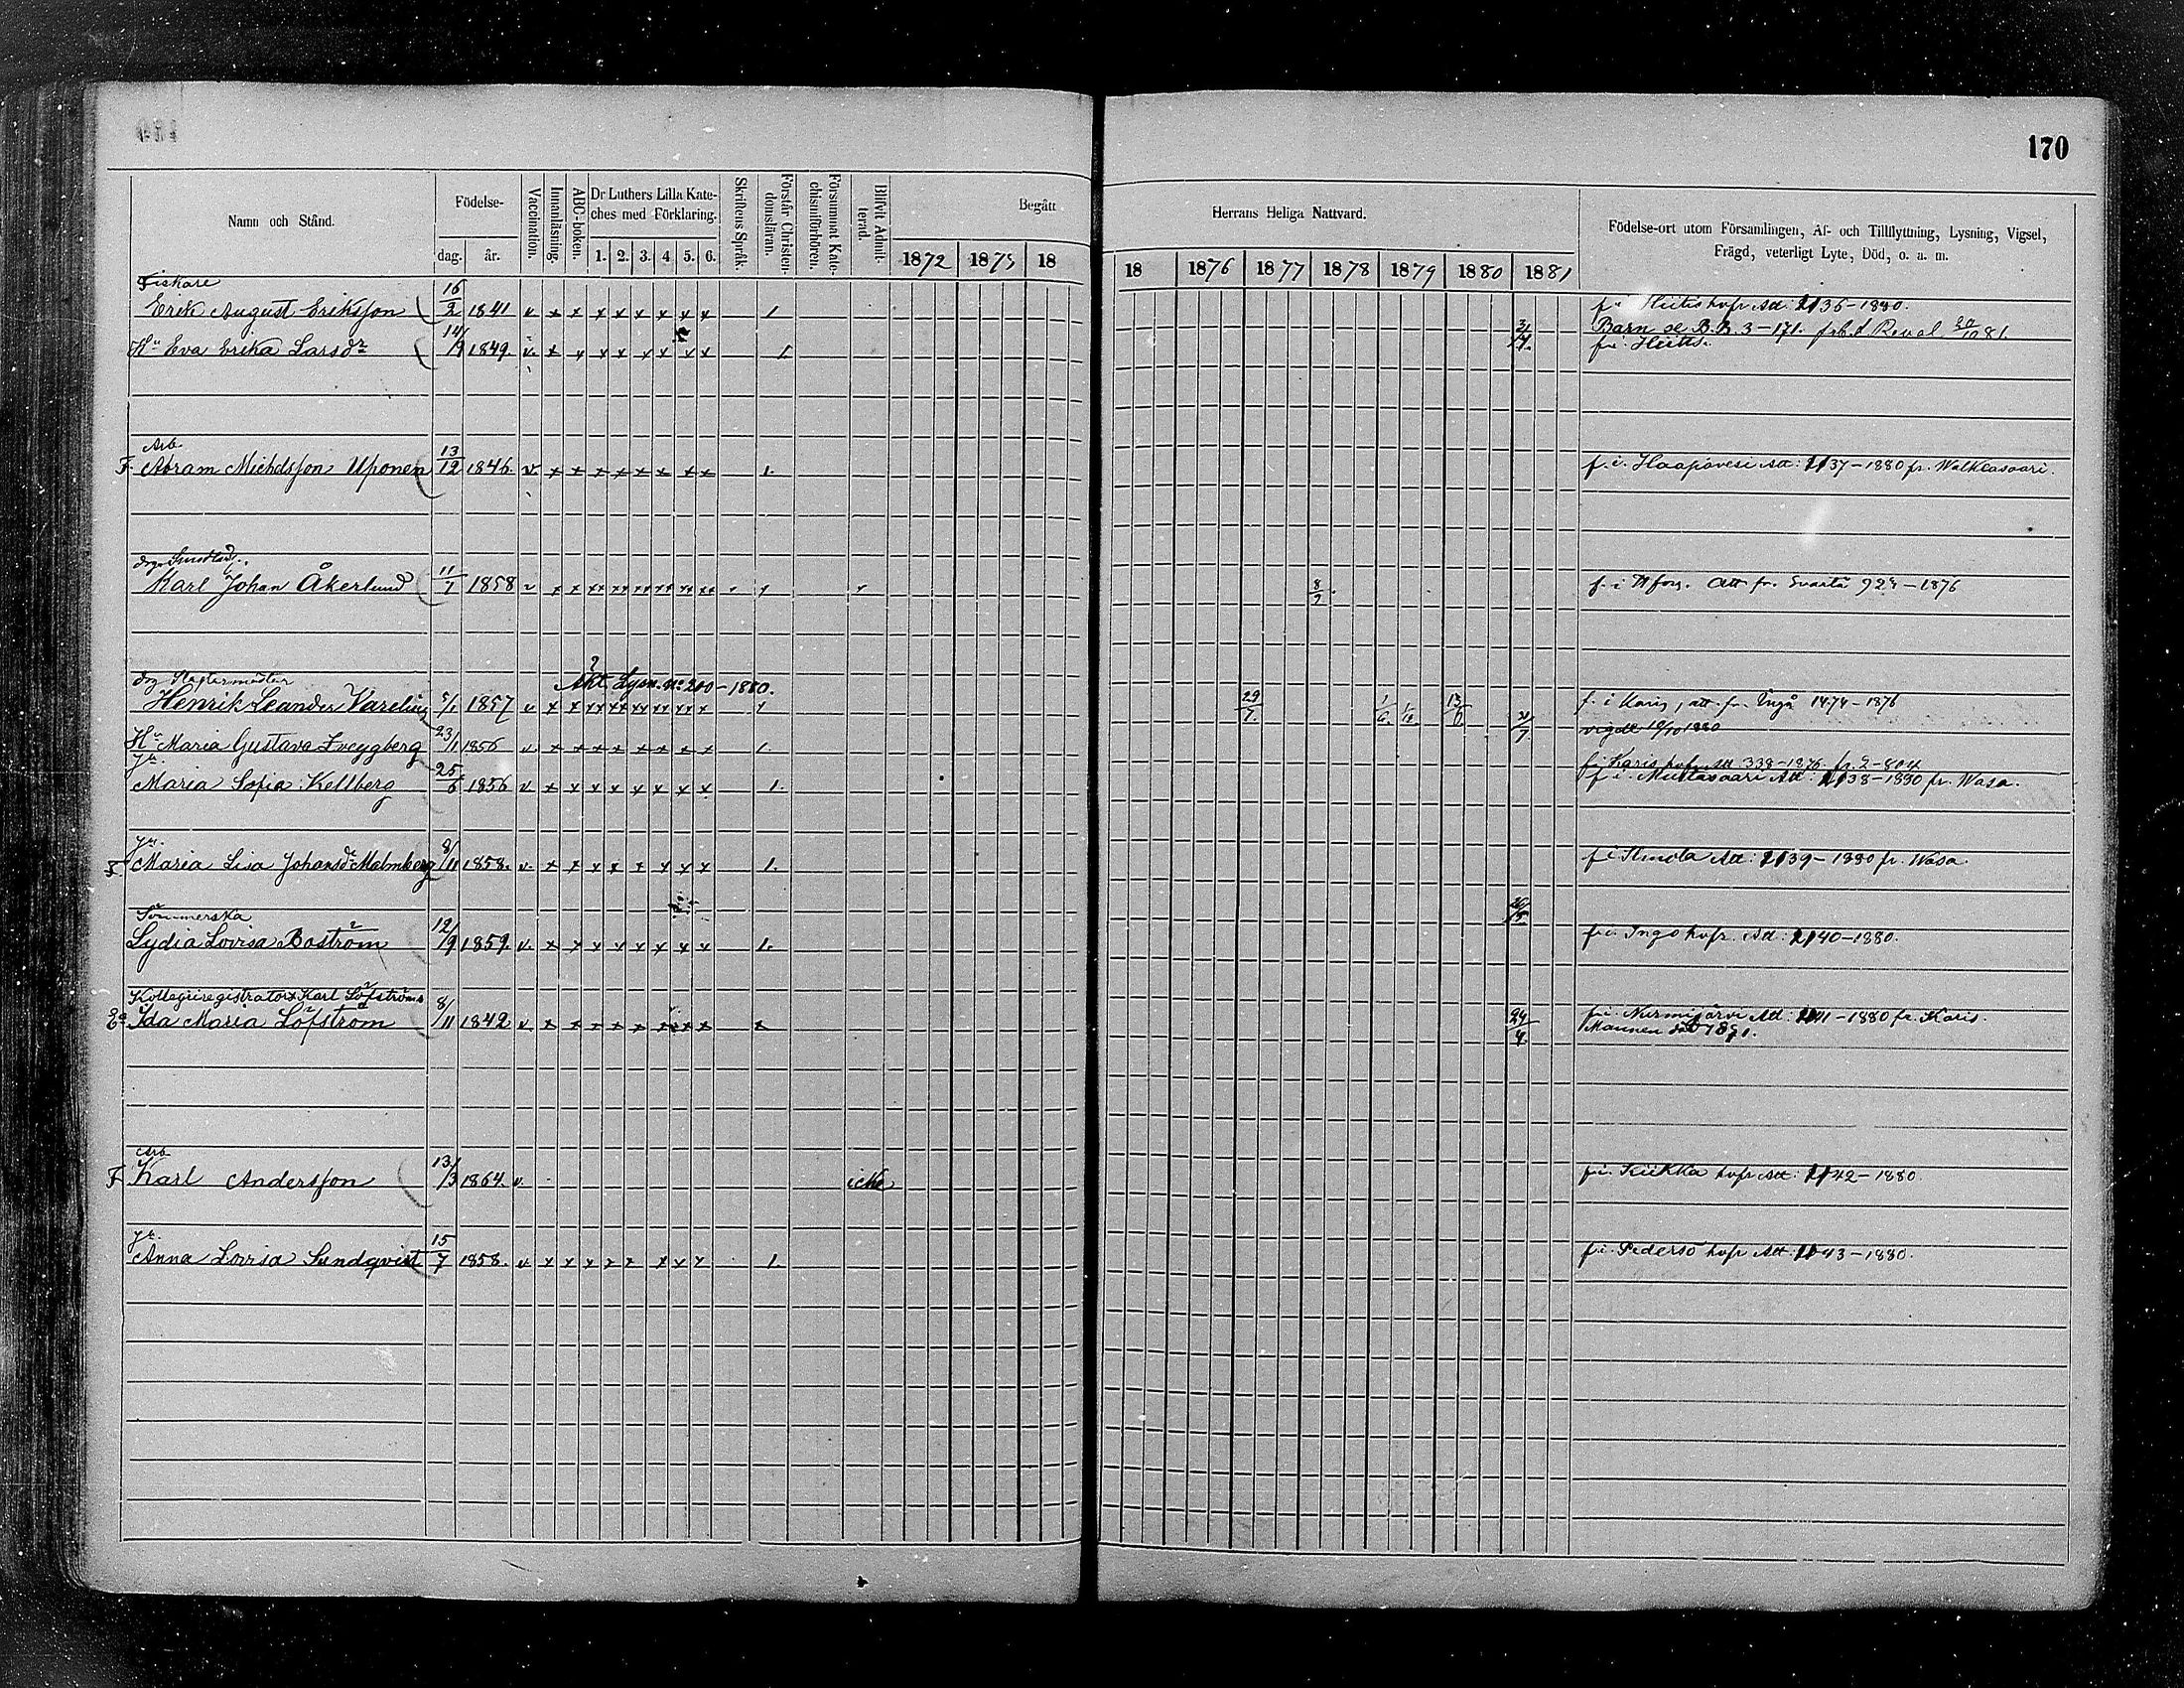 170
Namn och Stånd.
Födelse-
dag. år.
Vaccination.
Innanläsning.
ABC-boken.
Dr Luthers Lilla Kate-
ches med Förklaring.
1. 2. 3. 4 5. 6.
Skriftens Språk.
Förstår Christen-
domsläran.
Försummat Kate-
chismiförhören.
Blifvit Admit-
terad.
Begått
Herrans Heliga Nattvard.
1872 1875 18
18 1876 1877 1878 1879 1880 1881
Födelse-ort utom Församlingen, Af- och Tillflyttning, Lysning, Vigsel,
Frägd, veterligt Lyte, Död, o. a. m.
Fiskare
Erik August Eriksson 16/2 1841 v x x x x x x x x 1 f. i Hitis hvfr. Att: 2136-1880.
Barn se B.B. 3-171.
Hu Eva Erika Larsdr 14/9 1849. v. x x x x x x x x 1 f. i. Hitis.
Arb.
F. Abram Michelsson Uponen 13/12 1846. v. x x x x x x x x 1. f. i. Haapavesi Att: 2137-1880 fr.
Karl Johan Åkerlund 11/1 1858 v 8/9 f. i Att fr. 1876
Akt. Lysn. No 200-1880.
Henrik Leander 5/1 1857 v 29/7. 13/6 f. i Karis, att. fr. Ingå 1474-1876
vigde 10/10 1880
Hu Maria Gustava 23/1 1856 v. x x x x x x x x 1. f. i Karis hvfr. Att 338-1876.
Ja.
Maria Sofia Kellberg 25/6 1856 v x x x x x x x x 1. f. i. Mustasaari Att: 2138-1880 fr. Wasa.
Ja.
F Maria Lisa Johansdr Malmberg 8/11 1858. v. x x x x x x x x 1. f. i Att: 2139-1880 fr. Wasa.
Sömmerska
Lydia Lovisa Boström 12/9 1859. v. x x x x x x x x 1. f. i. Ingo hvfr. Att: 2140-1880.
Kollegiiregistrator Karl Löfströms
Ea Ida Maria Löfström 8/11 1842 v x x x x x x x x x 24/4. f. i. Nurmijärvi Att: 2141-1880 fr. Karis.
Mannen död
Arb
F Karl Andersson 13/3 1864. v. icke f. i. Kiikka hvfr Att: 2142-1880
Ja.
Anna Lovisa Sundqvist 15/7 1858. v x x x x x x x x 1. f. i. Pedersö hvfr Att: 2143-1880.